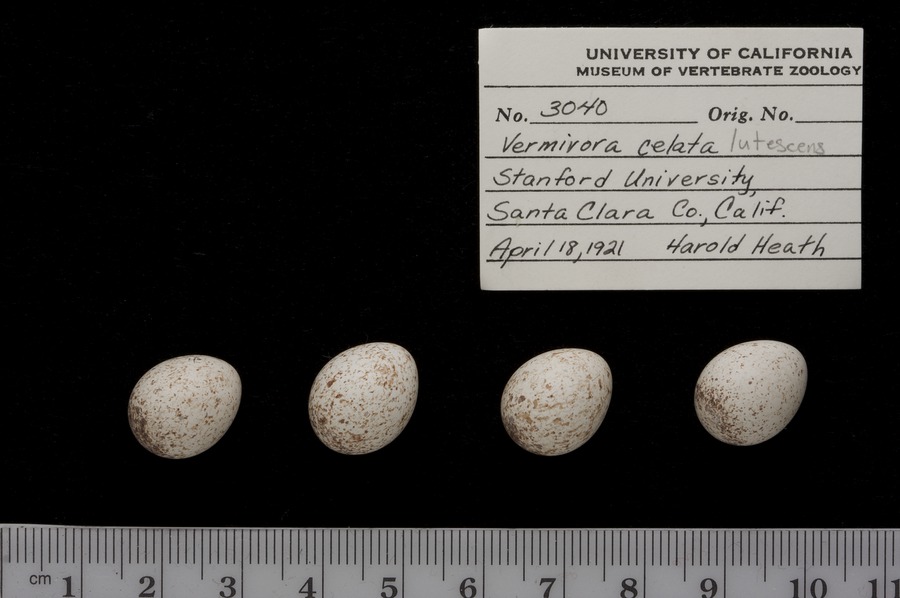 UNIVERSITY OF CALIFORNIA
MUSEUM OF VERTEBRATE ZOOLOGY
No. 3040 Orig. No.
Vermivora celata lutescens
Stanford University,
Santa Clara Co., Calif.
April 18, 1921 Harold Heath
cm 1 2 3 4 5 6 7 8 9 10 11